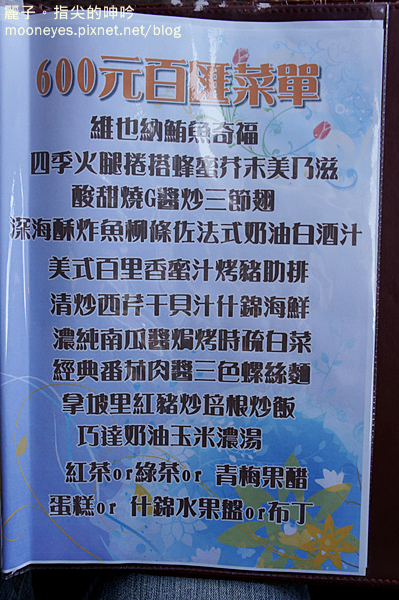 麗子。指尖的呻吟
mooneyes.pixnet.net/blog
600元百匯菜單
維也納鮪魚奇福
四季火腿捲搭蜂蜜芥末美乃滋
酸甜燒G醬炒三節翅
深海酥炸魚柳條佐法式奶油白酒汁
美式百里香蜜汁烤豬肋排
清炒西芹干貝汁什錦海鮮
濃純南瓜醬焗烤時疏白菜
經典番茄肉醬三色螺絲麵
拿坡里紅豬炒培根炒飯
巧達奶油玉米濃湯
紅茶or綠茶or 青梅果醋
蛋糕or 什錦水果盤or布丁